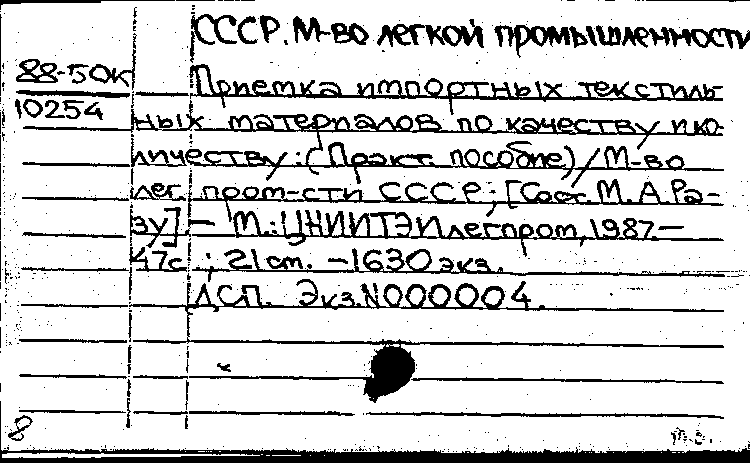 СССР. М-во легкой промышленности
88-50К
Приемка импортных текстиль-
10254
ных материалов по качеству и ко-
личеству: (Практ. пособие) / М-во
лег. пром-сти СССР; [Сост. М. А. Ра-
зу]. — М.: ЦНИИТЭИлегпром, 1987. —
47с ; 21 см. — 1630 экз.
ДСП. Экз. N000004.
8